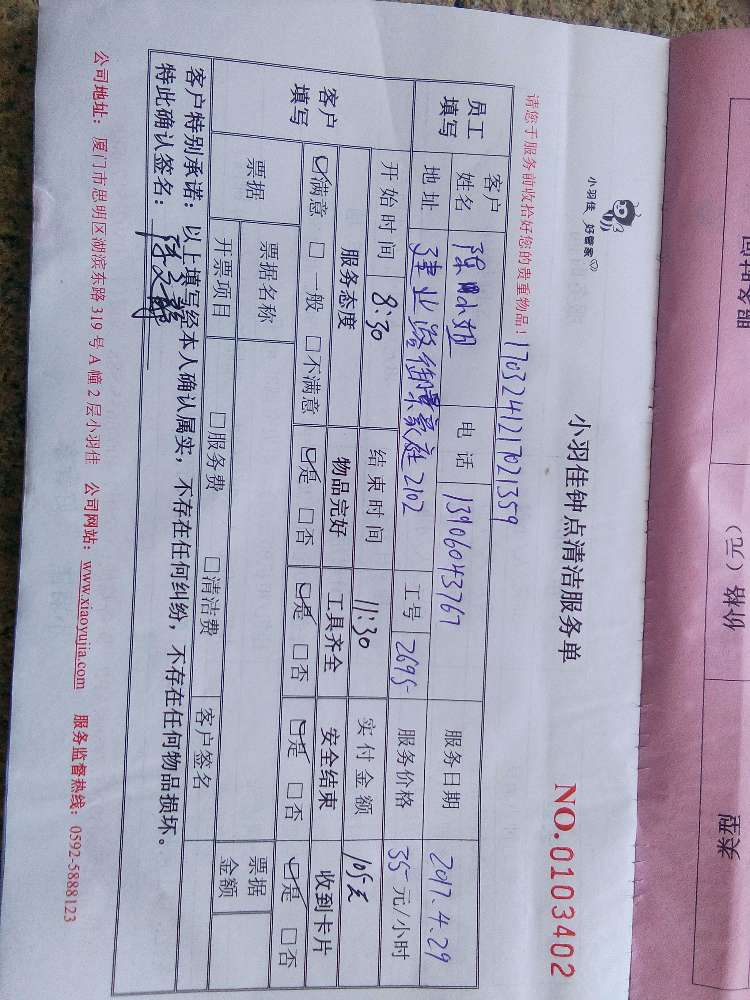 小羽佳 好管家
小羽佳钟点清洁服务单
NO.0103402
请您于服务前收拾好您的贵重物品！
1703241217021359
员工填写
客户姓名 电话 13906043767 服务日期 2017.4.29
地址 建业路御景豪庭2102 工号 2695 服务价格 35 元/小时
开始时间 8:30 结束时间 11:30 实付金额 105元
客户填写
服务态度 物品完好 工具齐全 安全结束 收到卡片
☑满意 □一般 □不满意 ☑是 □否 ☑是 □否 ☑是 □否 ☑是 □否
票据 票据名称 票据金额
开票项目 □服务费 □清洁费 客户签名
客户特别承诺：以上填写经本人确认属实，不存在任何纠纷，不存在任何物品损坏。
特此确认签名：
公司地址：厦门市思明区湖滨东路 319 号 A 幢 2 层小羽佳 公司网站：www.xiaoyujia.com 服务监督热线：0592-5888123
价格（元）
类型